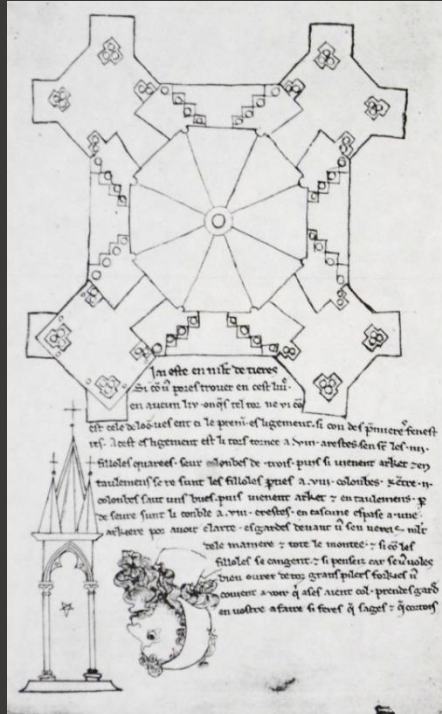 Jai este en mlt de tieres
Si cō v̄ pores trouer en cest liu'.
en aucun liv. onq̄s tel tor ne vi cō
est cele de loō. ves ent ci le premī. esligement. si con des p̄miere fenest
res. Acest esligement est li tors tornee a .viii. arestes. sen st les .iiii.
filloles quarees. seur colonbes de .trois. puis si uienent arket & en
taulemens se re sunt les filloles pties a .viii. colonbes. & entre .ii.
colonbes saut uns bues. puis uienent arket & en taulemens. p
de seure sunt li conble a .viii. crestes. en cascune espase a .une.
arkiere por auoir clarte. esgardes deuant ū seu veres. mlt
dele maniere & tote le montee. & si cō les
filloles se cangent. & si penseiz car se ū voles
bien ourer de toz grans pilers forkies ū
couient a voir q̄ ases aient col. prendes gard
en vostre afaire si feres q̄ sages & q̄ cortois